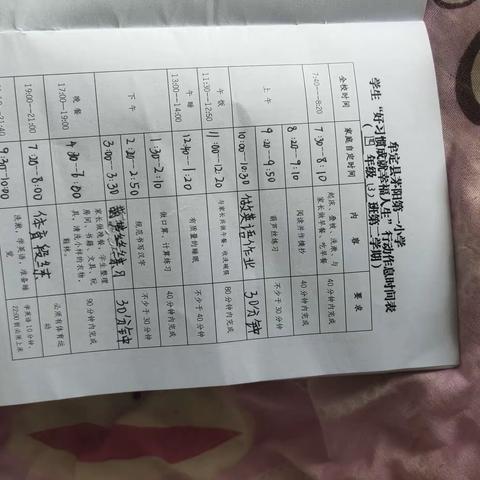 牟定县茅阳第一小学
学生“好习惯成就幸福人生”行动作息时间表
（四）年级（3）班第（）学期）
全校时间 家庭自定时间 内容 要求
7:40—8:20 7:30—8:10 起床、叠被、洗漱、与家长做早餐、吃早餐 40分钟内完成
上午 8:20—9:10 阅读并作摘抄 40分钟内完成
9:20—9:50 葫芦丝练习 不少于30分钟
10:00—10:30 做英语作业 30分钟
午饭 11:30—12:50 11:00—12:20 与家长共做午餐、收洗碗筷 80分钟内完成
午睡 13:00—14:00 12:40—1:20 有质量的睡眠 不少于40分钟
下午 1:30—2:10 做口算、计算练习 40分钟内完成
2:20—2:50 规范书写汉字 不少于30分钟
3:00—3:30 练习 30分钟
晚餐 17:00—19:00 4:30—6:00 家长做晚餐，学生整理房间、书籍、文具、玩具，清洗小件的衣物、鞋袜。 90分钟内完成
19:00—21:00 7:00—8:00 体育锻练 必须有体育运动
21:40 9:30—10:00 洗漱，学英语，准备睡觉 学英语10分钟，22:00前必须上床